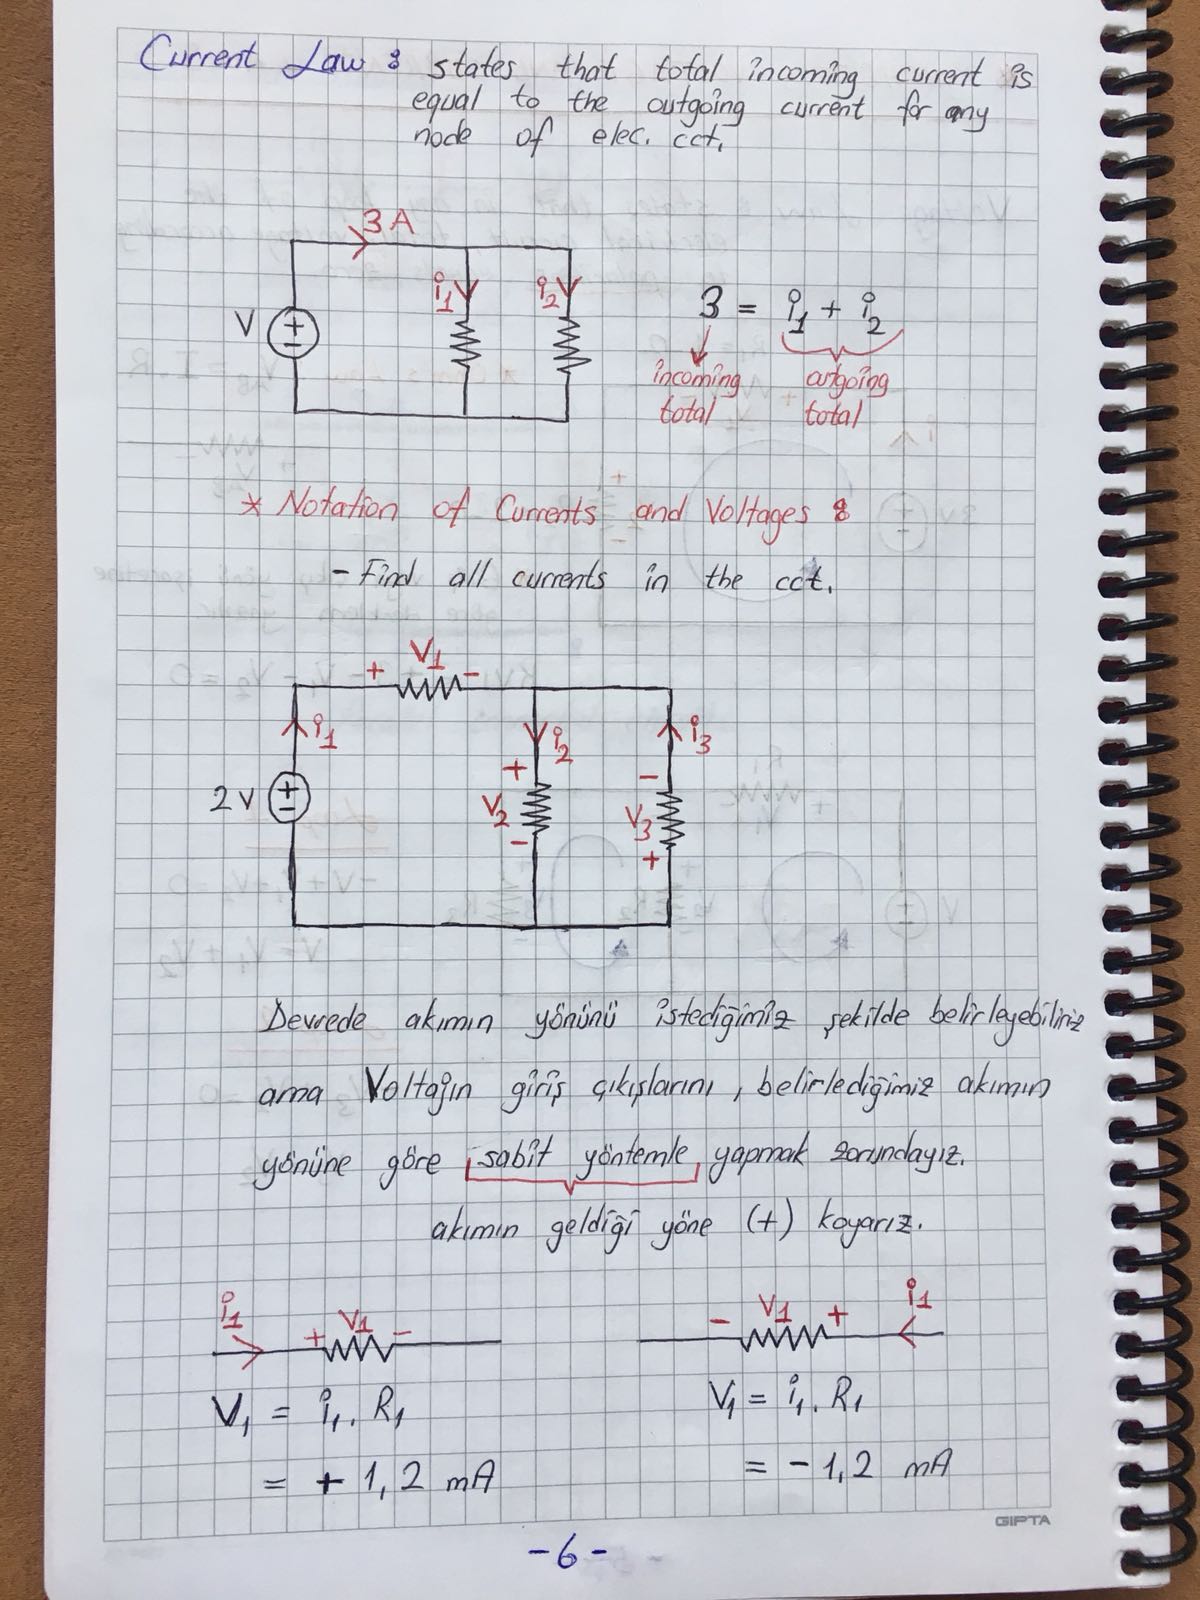 Current Law : states that total incoming current is
equal to the outgoing current for any
node of elec. cct.
3 A
V
i1
i2
3 = i1 + i2
incoming total
outgoing total
* Notation of Currents and Voltages :
- Find all currents in the cct.
+ V1 -
i1
i2
i3
2V
+ V2 -
- V3 +
Devrede akımın yönünü istediğimiz şekilde belirleyebiliriz
ama Voltajın giriş çıkışlarını, belirlediğimiz akımın
yönüne göre sabit yöntemle yapmak zorundayız.
akımın geldiği yöne (+) koyarız.
i1 + V1 -
- V1 + i1
V1 = i1. R1
= + 1,2 mA
V1 = i1. R1
= - 1,2 mA
GIPTA
-6-